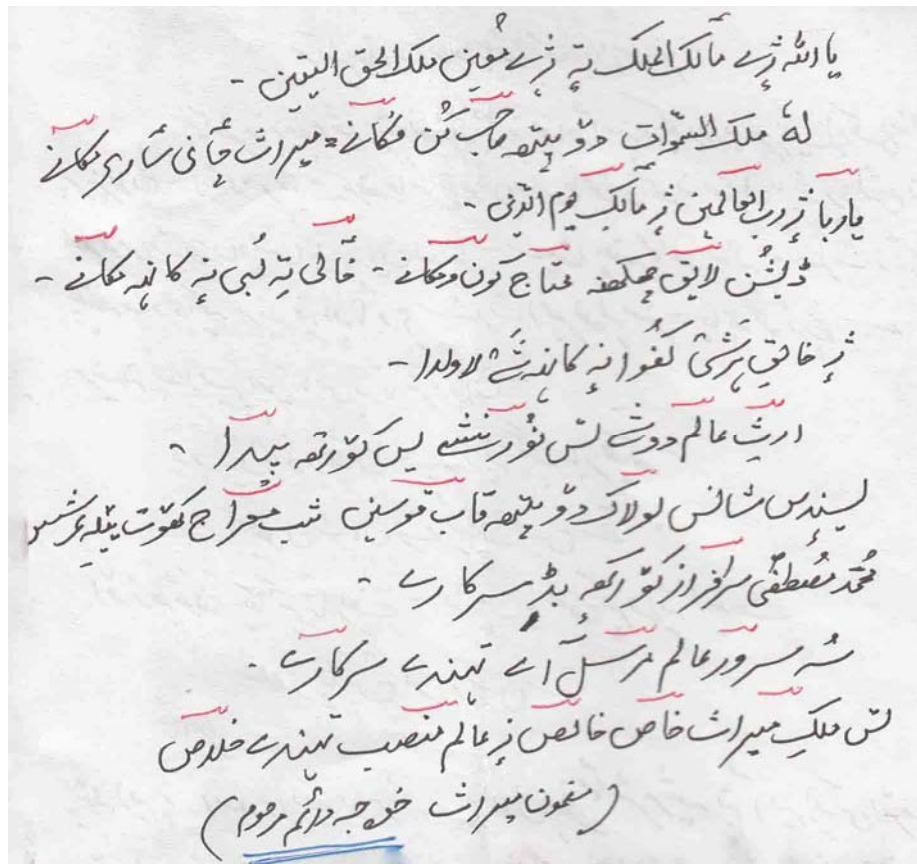 یا اللہ ژٕے مٲلک الملک تہٕ ژٕے مُعین ملک الحق الیقین -
لہٗ ملک السمٰوات دوٚپتھ صٲحب کُن فکانے = میراث چٲنی سٲری مکانے
یاربا ژٕ رب العالمین ژٕ مٲلک یوم الدّین -
ڈیشُن لایق چھکھ محتاج کون ومکانے - خٲلی تہٕ لُبی نہٕ کانہہ مکانے -
ژٕ خالق پرشی کفُوا نہٕ کانہہ شے لاولدا -
ارشِ عالم دوشے تس نوٗر نشے یس کوٚرتھ پیدا -
یسندِس شانس لولاک دوٚپتھ قاب قوسین شب معراج کھوٚت پیٹھ عرشس
محمّد مُصطفٰی سرافراز کوٚرتھ بڈِ سرکارے -
سُہ سرورِ عالم مُرسل آے تہندے سرکارے -
تس ملکِ میراث خاص خالص زِ عالم منصب تہندے خلاص
(مضمون میراث خوجہ دٲئم مرحوم)